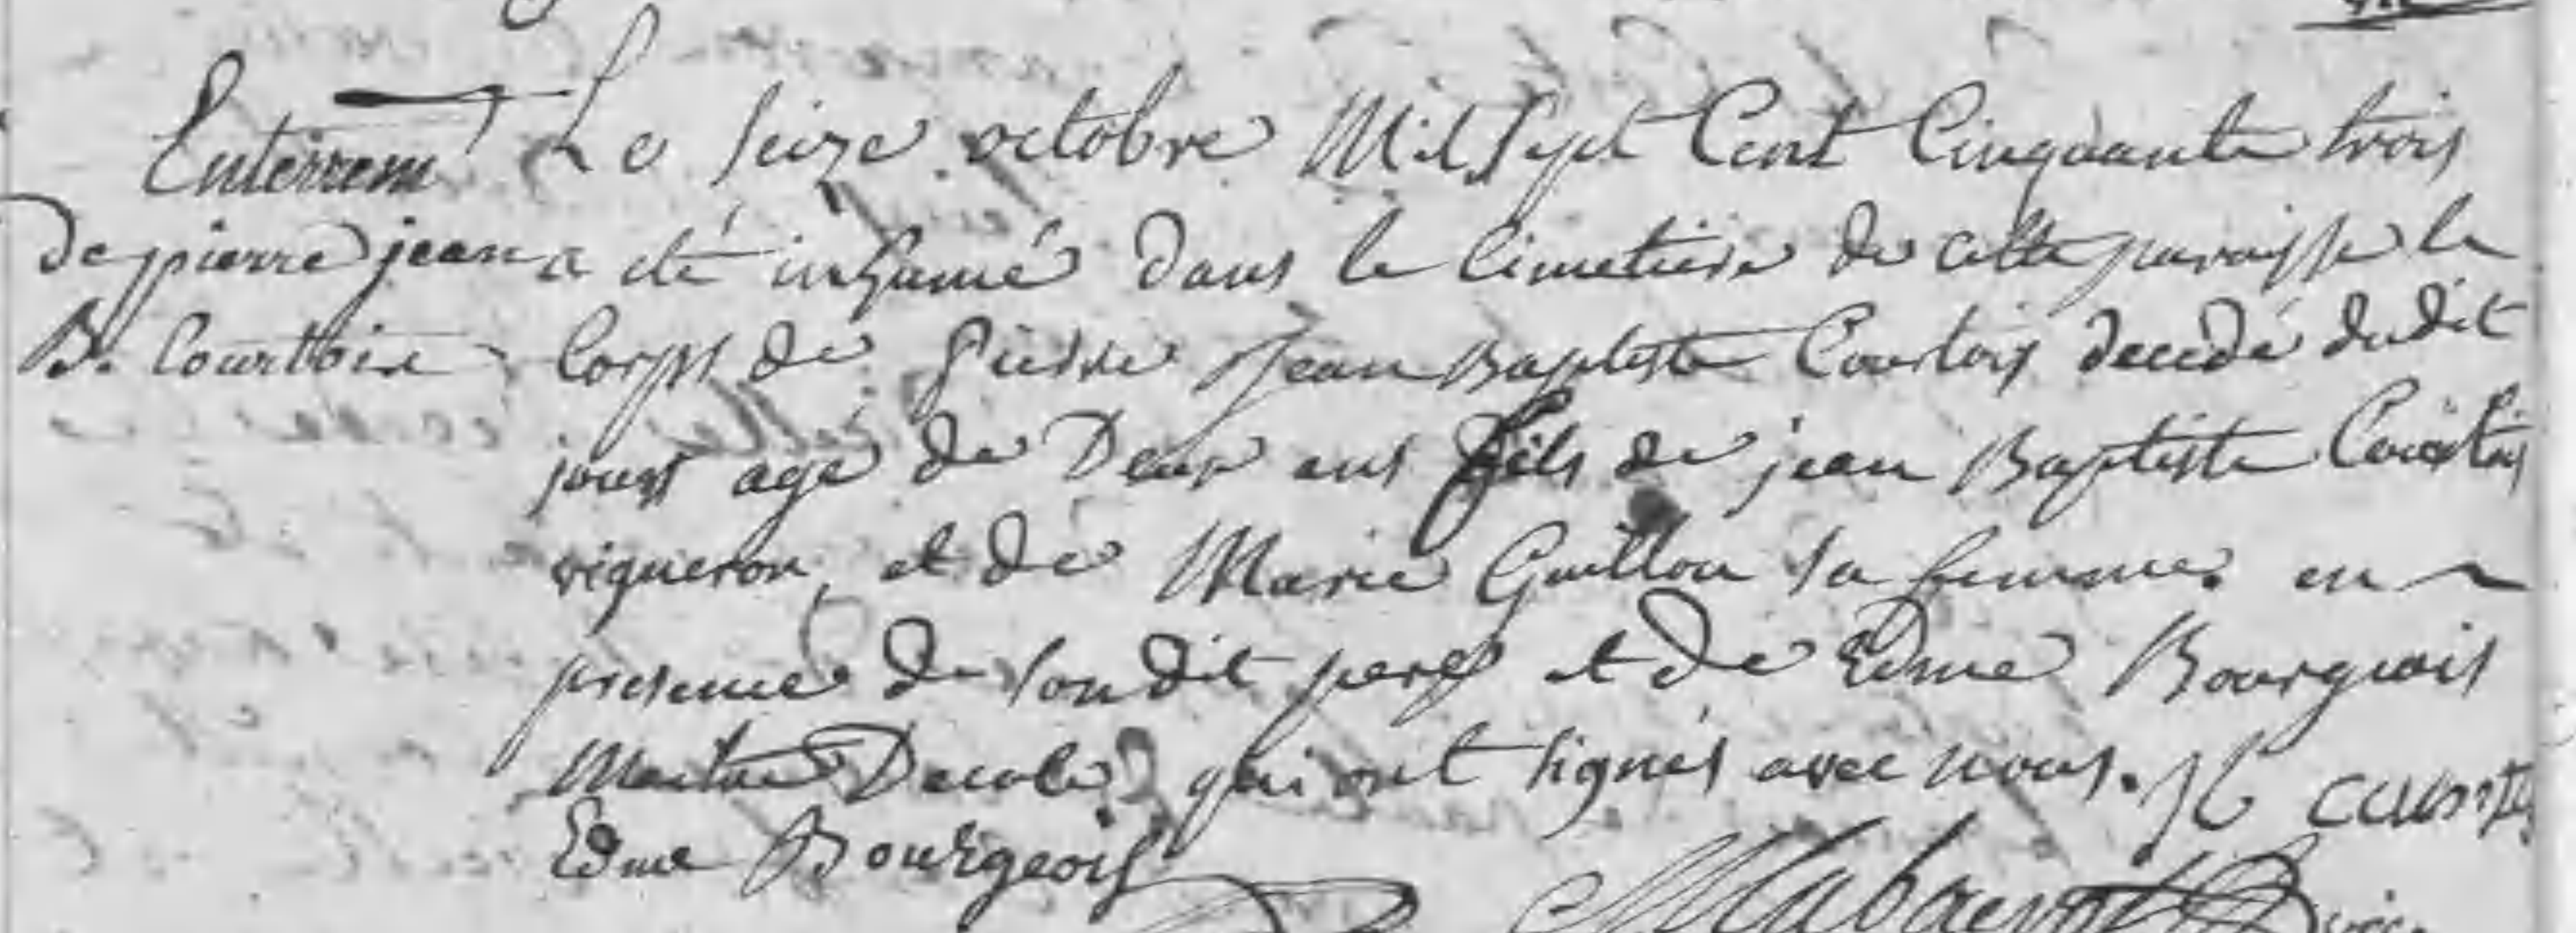 Enterrem^t
de pierre jean
B. Courttois
Le seize octobre Mil Sept Cent Cinquante trois
a été inhumé dans le Cimetiere de cette paroisse le
Corps de Pierre Jean Baptiste Courtois decedé dudit
jours agé de Deux ans fils de jean Baptiste Courtois
vigneron, et de Marie Guillon sa femme. en
presence de son dit pere et de Edme Bourgeois
Maitre Decole qui ont signés avec nous. J C courtois
Edme Bourgeois